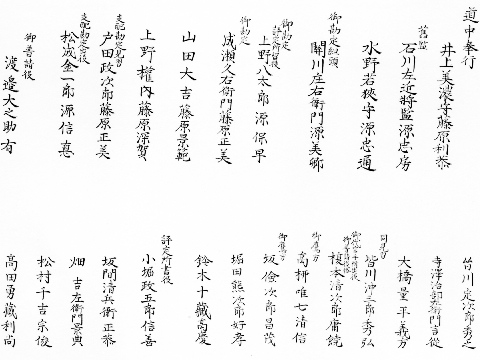 道中奉行
井上美濃守藤原利恭
石川左近将監源忠房
水野若狭守源忠通
御勘定組頭
關川庄右衛門源美卿
御勘定
評定所留役
上野八太郎源保早
御勘定
成瀬久右衛門藤原正美
山田大吉藤原景範
上野權内藤原深賀
支配勘定見習
戸田政次郎藤原正美
支配勘定役
松波金一郎源信真
御普請役
渡邉大之助有
皆川定次郎秀之
寺澤治部右衛門吉従
大橋量平義方
同見方
皆川沖三郎秀弘
榎本清次郎庸鎮
御鳥方
高栁唯七清信
御鳥方
坂倹次郎昌茂
堀田熊次郎好孝
鈴木十藏高慶
評定所書役
小堀政五郎信善
坂間清兵衛正恭
畑吉左衛門景典
松村千吉宗俊
高田勇藏利尚